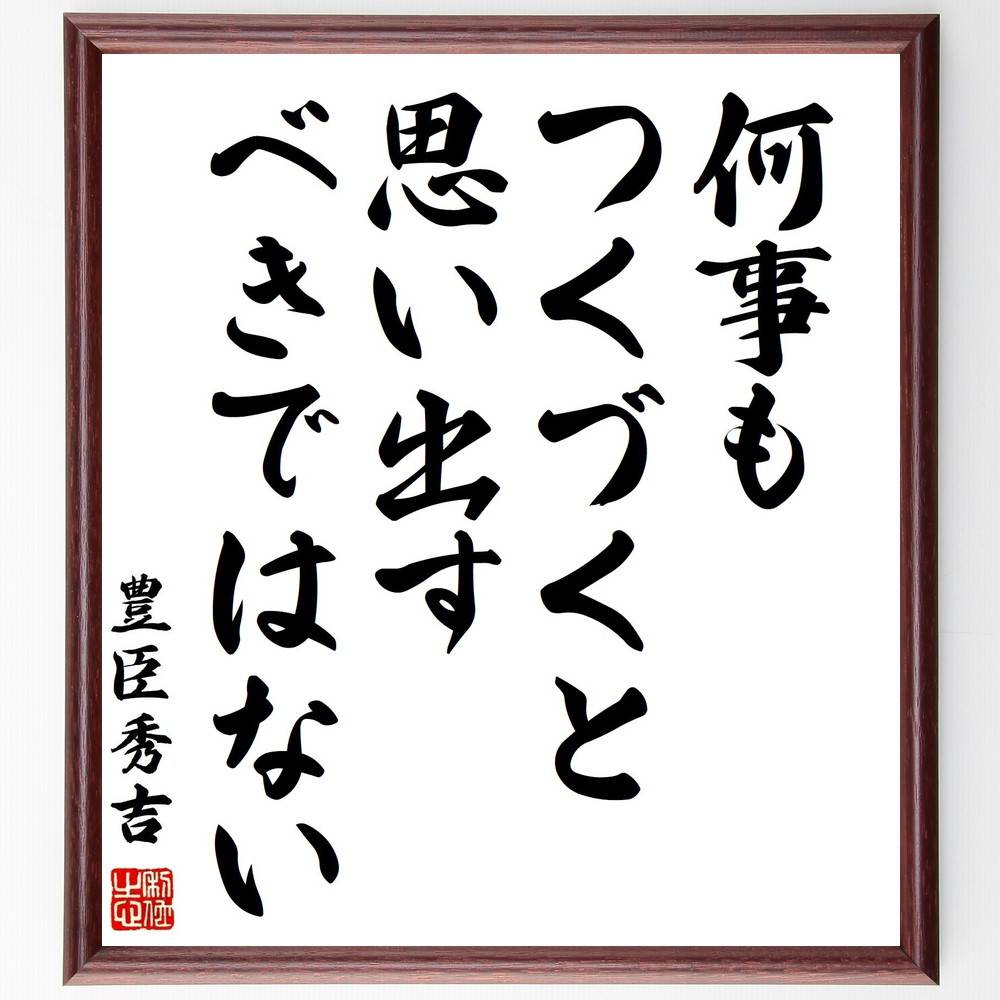 何事も
つくづくと
思い出す
べきではない
豊臣秀吉